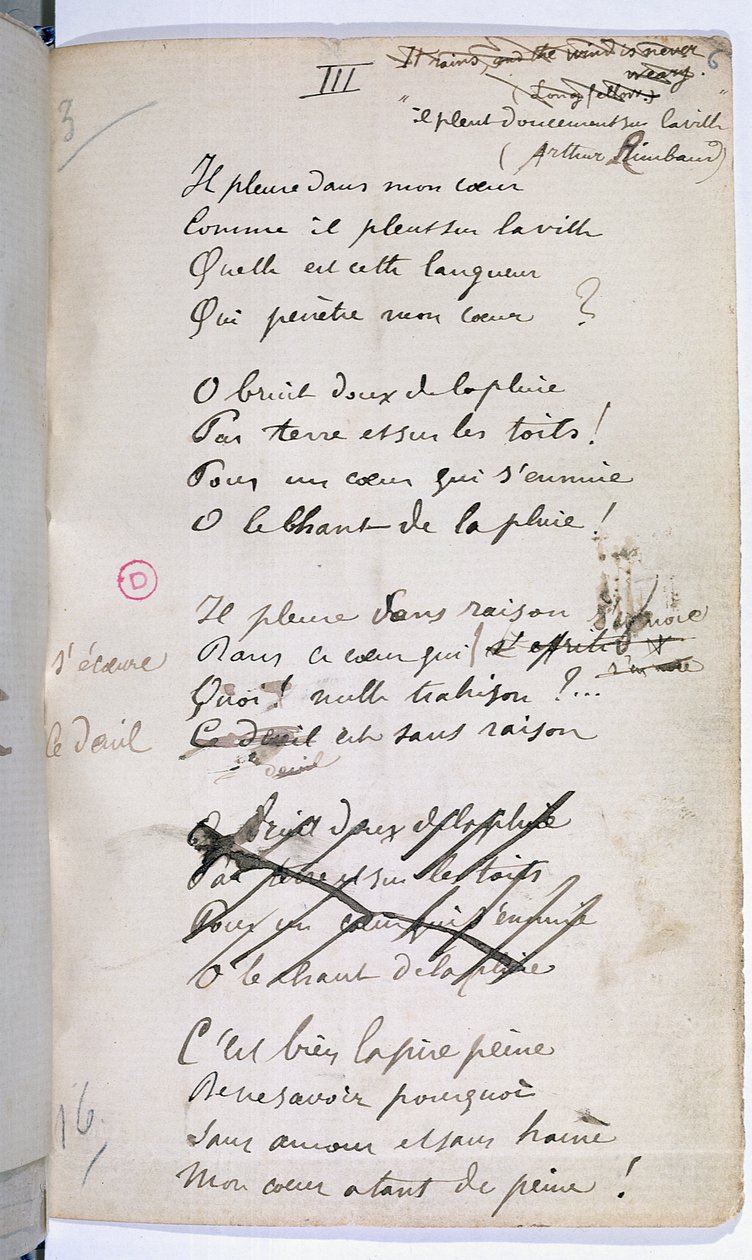 It rains, and the wind is never
weary.
(Longfellow.)
III
6
3
"il pleut doucement sur la ville"
(Arthur Rimbaud)
Il pleure dans mon cœur
Comme il pleut sur la ville
Quelle est cette langueur
Qui penètre mon cœur ?
O bruit doux de la pluie
Par terre et sur les toits !
Pour un cœur qui s'ennuie
O le Chant de la pluie !
D
Il pleure sans raison
s'écœure Dans ce cœur qui
Quoi ! nulle trahison ?...
le deuil Ce deuil est sans raison
deuil
O bruit doux de la pluie
Par terre et sur les toits
Pour un cœur qui s'ennuie
O le chant de la pluie
C'est bien la pire peine
De ne savoir pourquoi
16.
Sans amour et sans haine
Mon cœur a tant de peine !